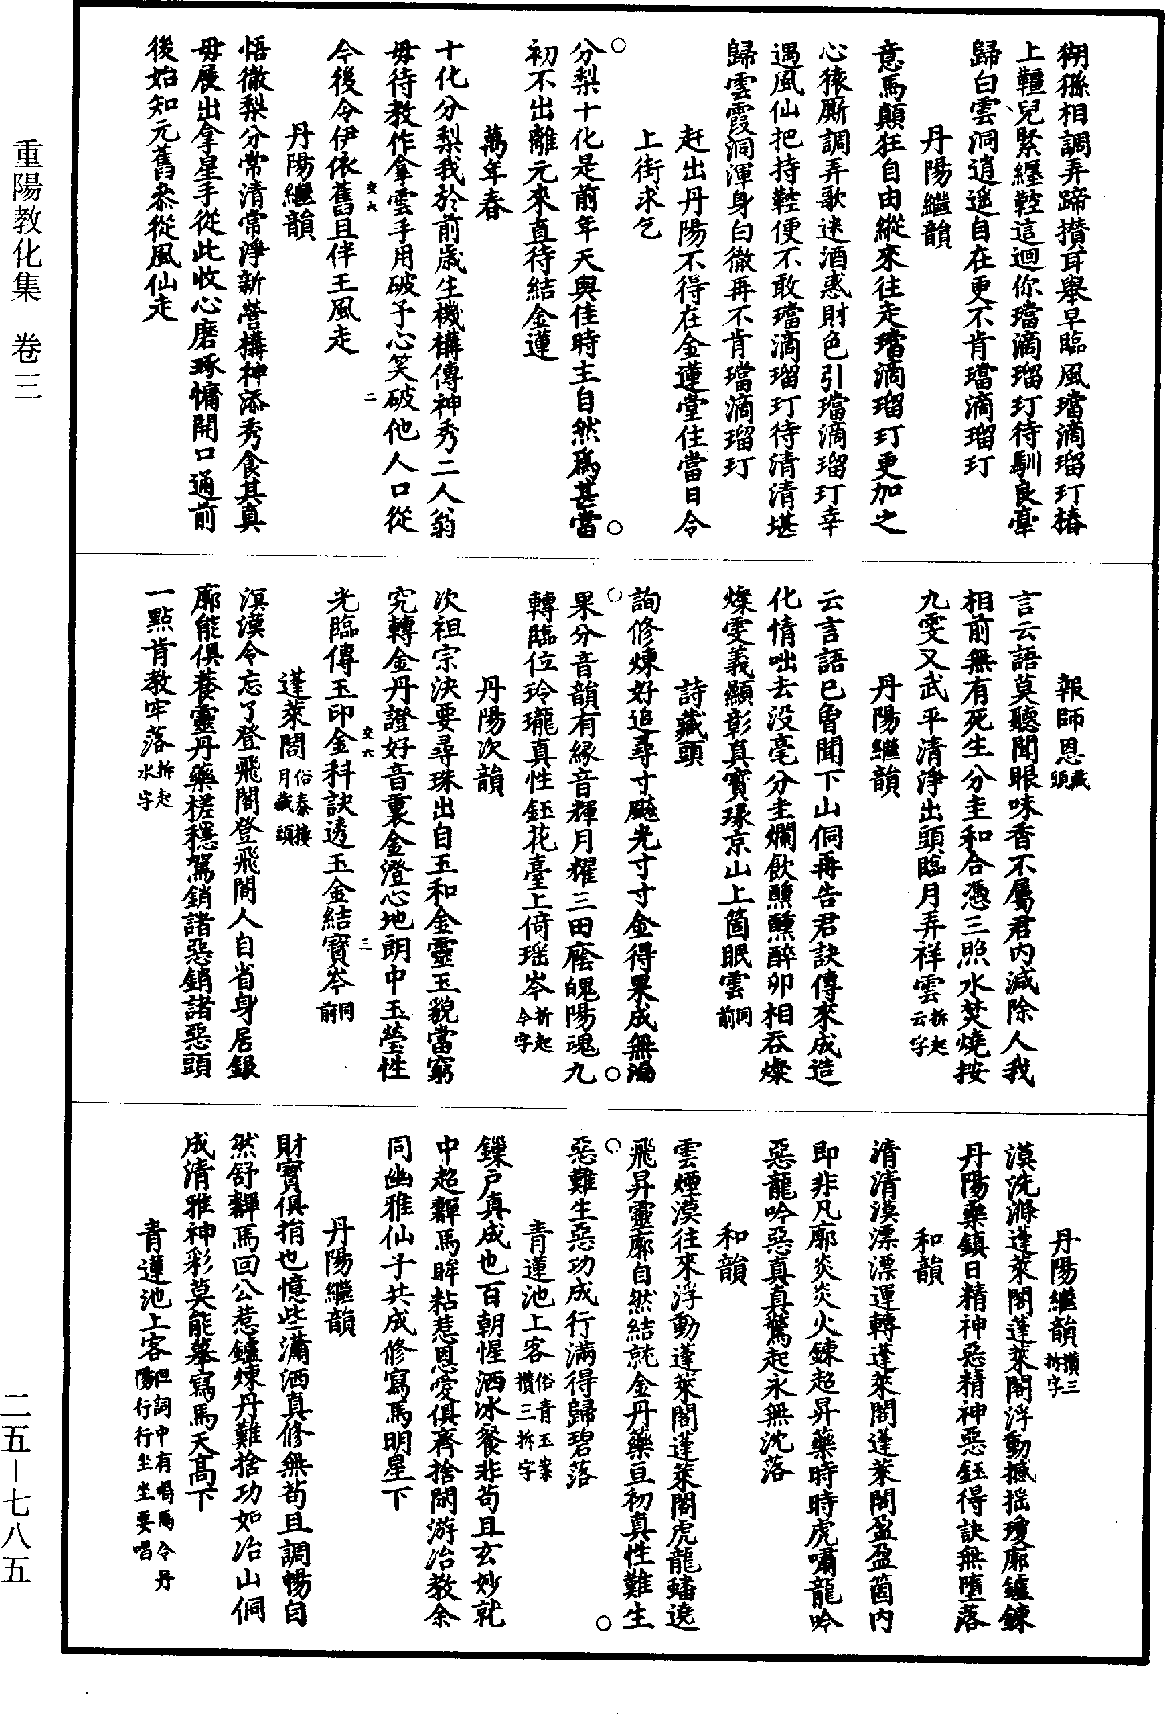 猢猻相調弄蹄攢耳舉早臨風璫滴瑠玎椿
上韁兒緊纏鞚這迴你璫滴瑠玎待馴良牽
歸白雲洞逍遙自在更不肯璫滴瑠玎
丹陽繼韻
意馬顛狂自由縱來往走璫滴瑠玎更加之
心猿廝調弄歌迷酒惑財色引璫滴瑠玎幸
遇風仙把持鞚便不敢璫滴瑠玎待清清堪
歸雲霞洞渾身白徹再不肯璫滴瑠玎
赶出丹陽不得在金蓮堂住當日令
上街求乞
分梨十化是前年天與佳時主自然為甚當
初不出離元來直待結金蓮
萬年春
十化分梨我於前歲生機構傳神秀二人翁
毋待教作拿雲手用破予心笑破他人口從
今後令伊依舊且伴王風走
丹陽繼韻
悟徹梨分常清常淨新營構神添秀食其真
毋展出拿星手從此收心磨琢慵開口通前
後始知元舊叅從風仙走
交六
二
報師恩藏頭
言云語莫聽聞眼味香不屬君內滅除人我
相前無有死生分圭和合憑三照水焚燒按
九雯又武平清淨出頭臨月弄祥雲拆起云字
丹陽繼韻
云言語已曾聞下山侗再告君訣傳來成造
化情咄去没毫分圭爛飲醺醺醉卯相吞燦
燦雯義顯彰真寳琢京山上箇眠雲同前
詩藏頭
詢修煉好追尋寸颷光寸寸金得果成無漏
果分音韻有緣音輝月耀三田蔭魄陽魂九
轉臨位玲瓏真性鈺花臺上倚瑶岑拆起今字
丹陽次韻
次祖宗決要尋珠出自玉和金靈玉貌當窮
究轉金丹證好音裏金澄心地朗中玉瑩性
光臨傳玉印金科訣透玉金結寳岑同前
蓬萊閣俗泰接月藏頭
溟漠令忘了登飛閣登飛閣人自省身居銀
廓能俱養靈丹藥槎穩駕銷諸惡銷諸惡頭
一點肯教牢落拆起水字
交六
三
丹陽繼韻攢三拆字
漠洗滌蓬萊閣蓬萊閣浮動撼摇瓊廓鑪鍊
丹陽藥鎮日精神惡精神惡鈺得訣無墮落
和韻
清清漠漂漂運轉蓬萊閣蓬萊閣盈盈箇内
即非凡廓炎炎火鍊超昇藥時時虎嘯龍吟
惡龍吟惡真真驚起永無沈落
和韻
雲煙漠往來浮動蓬萊閣蓬萊閣虎龍蟠遶
飛昇靈廓自然結就金丹藥亘初真性難生
惡難生惡功成行滿得歸碧落
青蓮池上客俗青玉案攢三拆字
鏁户真成也百朝惺洒冰餐非荀且玄妙就
中超彛馬眸粘惹恩愛俱齊捨閑游冶教余
同幽雅仙子共成修寫馬明星下
丹陽繼韻
財寳俱捐也憶些瀟洒真修無荀且調暢自
然舒彛馬回公惹鑪煉丹難捨功如冶山侗
成清雅神彩莫能摹寫馬天高下
青蓮池上客但詞中有喝馬令丹陽行行坐坐要唱
重陽教化集　卷三
二五—七八五